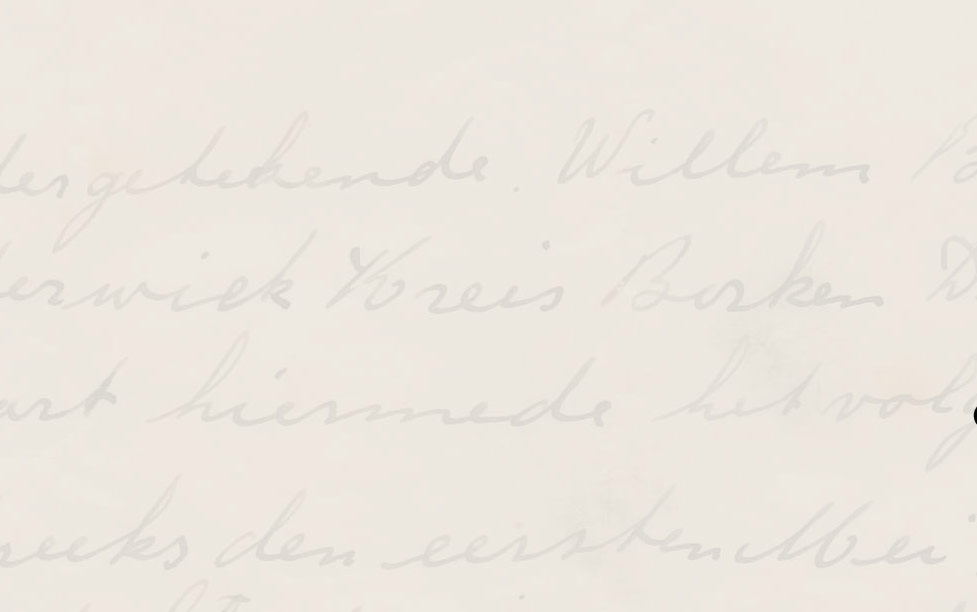 dergetekende. Willem B
derwick Kreis Borken D
aart hiermede het volg
reeks den eersten Mei